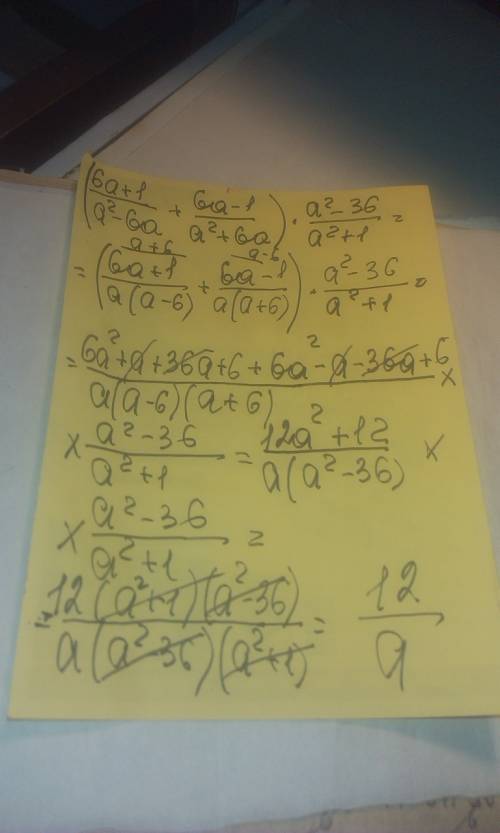 ((6a+1)/(a²-6a) + (6a-1)/(a²+6a)) · (a²-36)/(a²+1) =
a+6 a-6
= ((6a+1)/(a(a-6)) + (6a-1)/(a(a+6))) · (a²-36)/(a²+1) =
= (6a²+a+36a+6+6a²-a-36a+6)/(a(a-6)(a+6)) ×
× (a²-36)/(a²+1) = (12a²+12)/(a(a²-36)) ×
× (a²-36)/(a²+1) =
= (12(a²+1)(a²-36))/(a(a²-36)(a²+1)) = 12/a